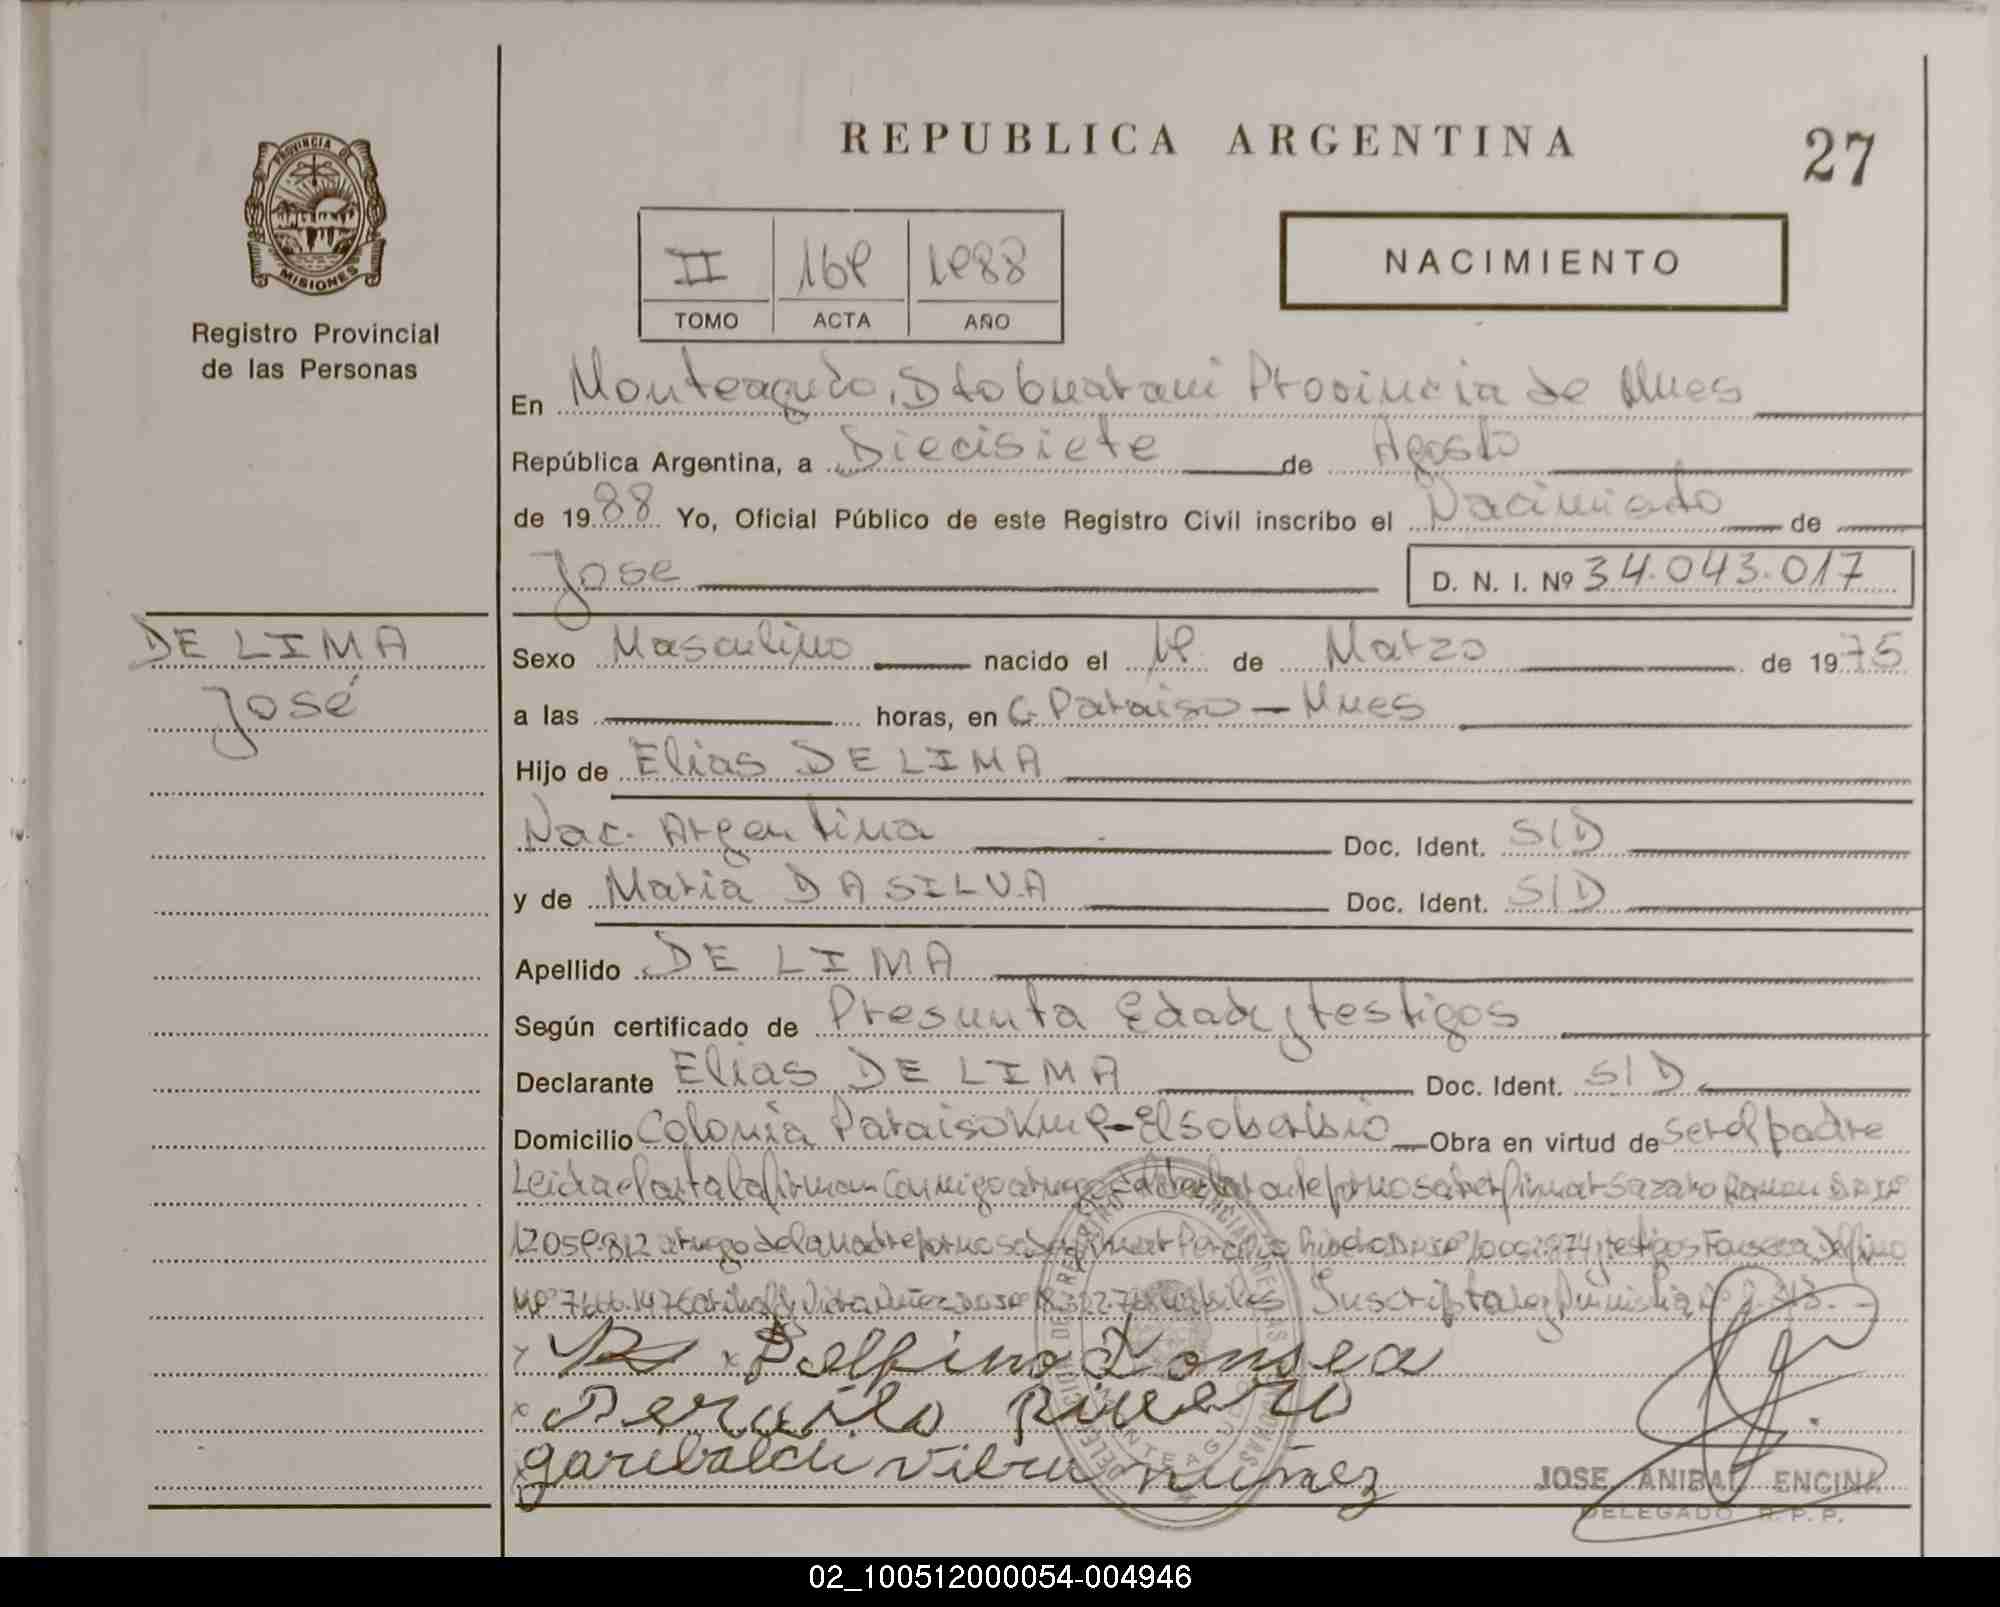 REPUBLICA ARGENTINA
27
PROVINCIA D
MISIONES
Registro Provincial
de las Personas
II 169 1988
TOMO ACTA AÑO
NACIMIENTO
En Monteagudo, Dto Guarani Provincia de Mnes
República Argentina, a Diecisiete de Agosto
de 1988 Yo, Oficial Público de este Registro Civil inscribo el Nacimiento de
Jose D. N. I. Nº 34.043.017
DE LIMA
José
Sexo Masculino nacido el 19 de Marzo de 1975
a las horas, en C. Paraiso - Mnes
Hijo de Elias DE LIMA
Nac. Argentina Doc. Ident. S/D
y de Maria DA SILVA Doc. Ident. S/D
Apellido DE LIMA
Según certificado de Presunta Edad y testigos
Declarante Elias DE LIMA Doc. Ident. S/D
Domicilio Colonia Paraiso Km 9 - El soberbio Obra en virtud de ser el padre
Leida el acta la firman conmigo a ruego del declarante por no saber firmar Ramon
a ruego de la madre por no saber firmar testigos Fonseca Delfino
Suscripta
x Delfino Fonseca
x Percilio Rivero
garibaldi Vieira nuñez
JOSE ANIBAL ENCINA
DELEGADO R. P. P.
02_100512000054-004946